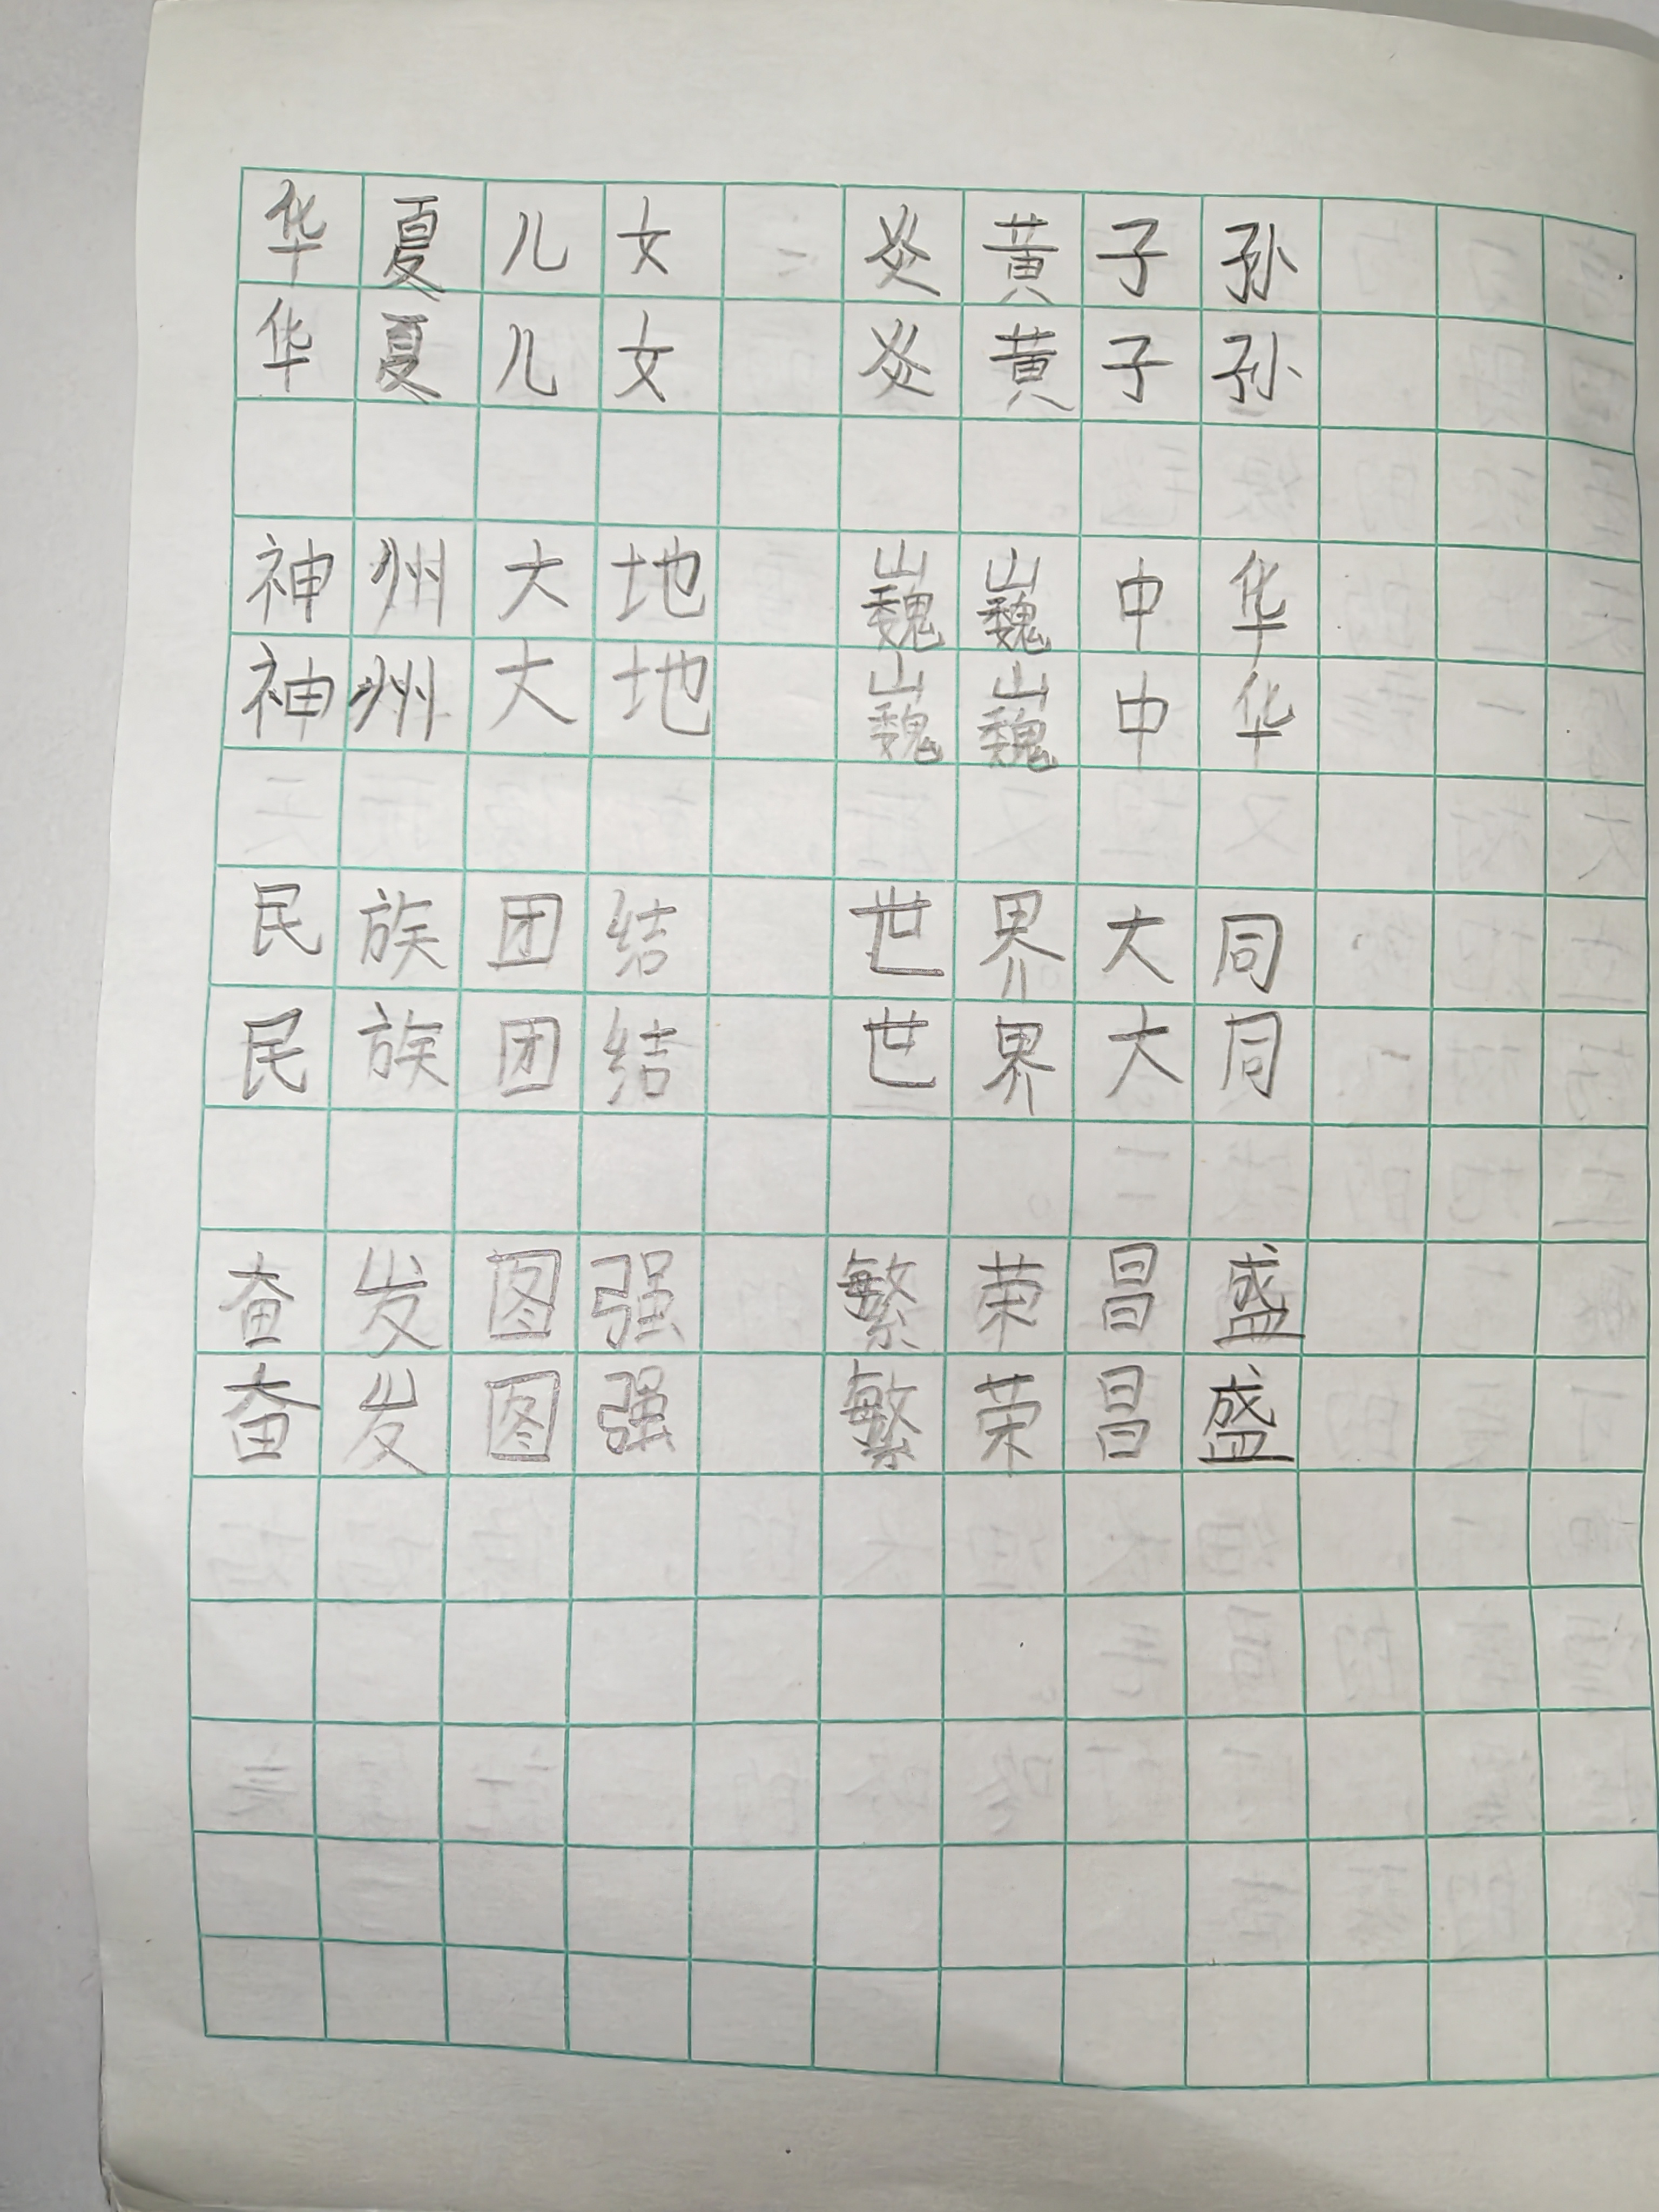 华夏儿女 炎黄子孙
华夏儿女 炎黄子孙
神州大地 巍巍中华
神州大地 巍巍中华
民族团结 世界大同
民族团结 世界大同
奋发图强 繁荣昌盛
奋发图强 繁荣昌盛